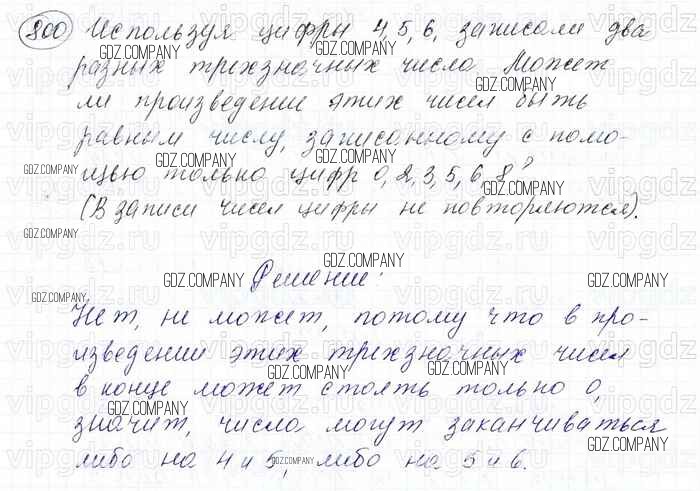 800 Используя цифры 4,5,6, записали два
разных трехзначных число. Может
ли произведение этих чисел быть
равным числу, записанному с помо-
щью только цифр 0,2,3,5,6,8?
(В записи чисел цифры не повторяются).
Решение:
Нет, не может, потому что в про-
изведении этих трехзначных чисел
в конце может стоять только 0,
значит, числа могут заканчиваться
либо на 4 и 5, либо на 5 и 6.